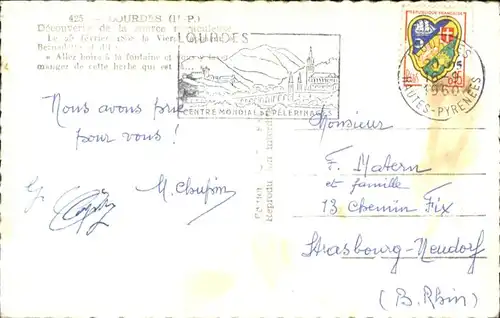 425 - LOURDES (H.-P.)
Découverte de la source
Le 25 février 1858 la Vierge
Bernadette et dit
« Allez boire à la fontaine et
manger de cette herbe qui est
LOURDES
CENTRE MONDIAL DE PÈLERINAGE
REPUBLIQUE FRANÇAISE
1960
HAUTES-PYRENEES
Nous avons prié
pour vous !
M. Chupin
Monsieur
F. Matern
et famille
13 Chemin Fix
Strasbourg-Neudorf
(B. Rhin)